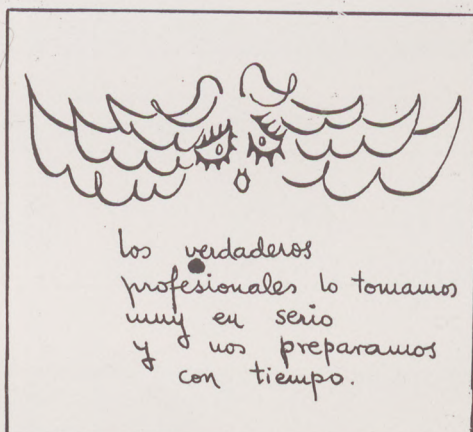 los verdaderos
profesionales lo tomamos
muy en serio
y nos preparamos
con tiempo.